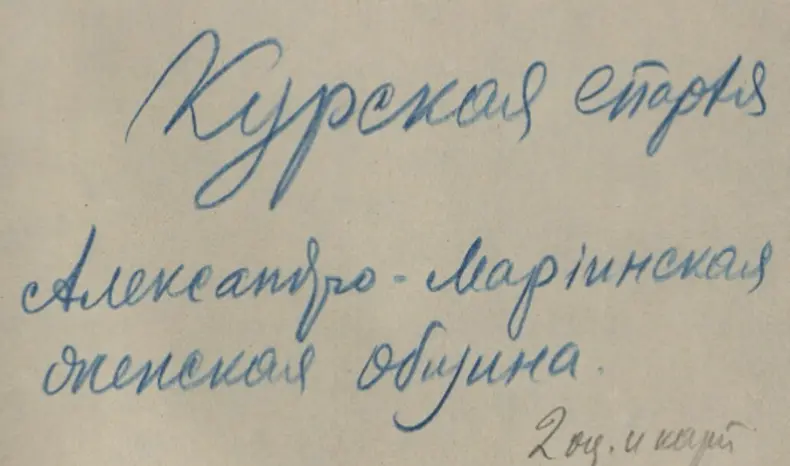 Курская епархія
Александро-Маріинская
женская община.
2 оц. и карт